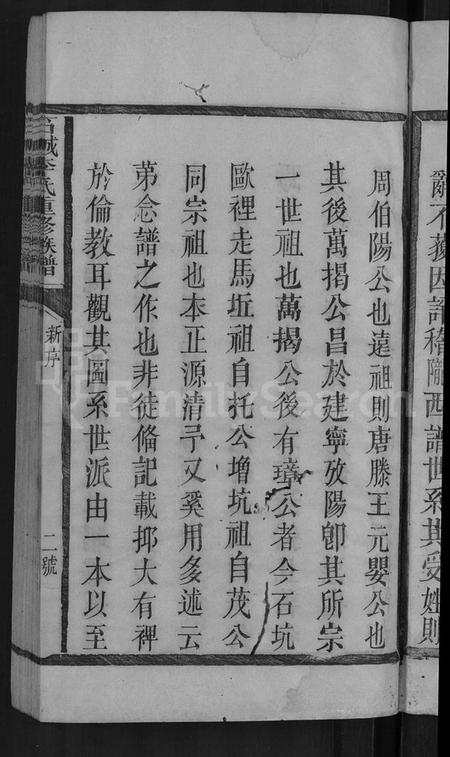 辭不獲因詢稽隴西譜世系其受姓則
周伯陽公也遠祖則唐滕王元嬰公也
其後萬揭公昌於建寧攸陽卽其所宗
一世祖也萬揭公後有璋公者今石坑
歐裡走馬坵祖自托公增坑祖自茂公
同宗祖也本正源清予又奚用多述云
第念譜之作也非徒俻記載抑大有裨
於倫教耳觀其圖系世派由一本以至
城李氏重修族譜
新序
二號
FamilySearch